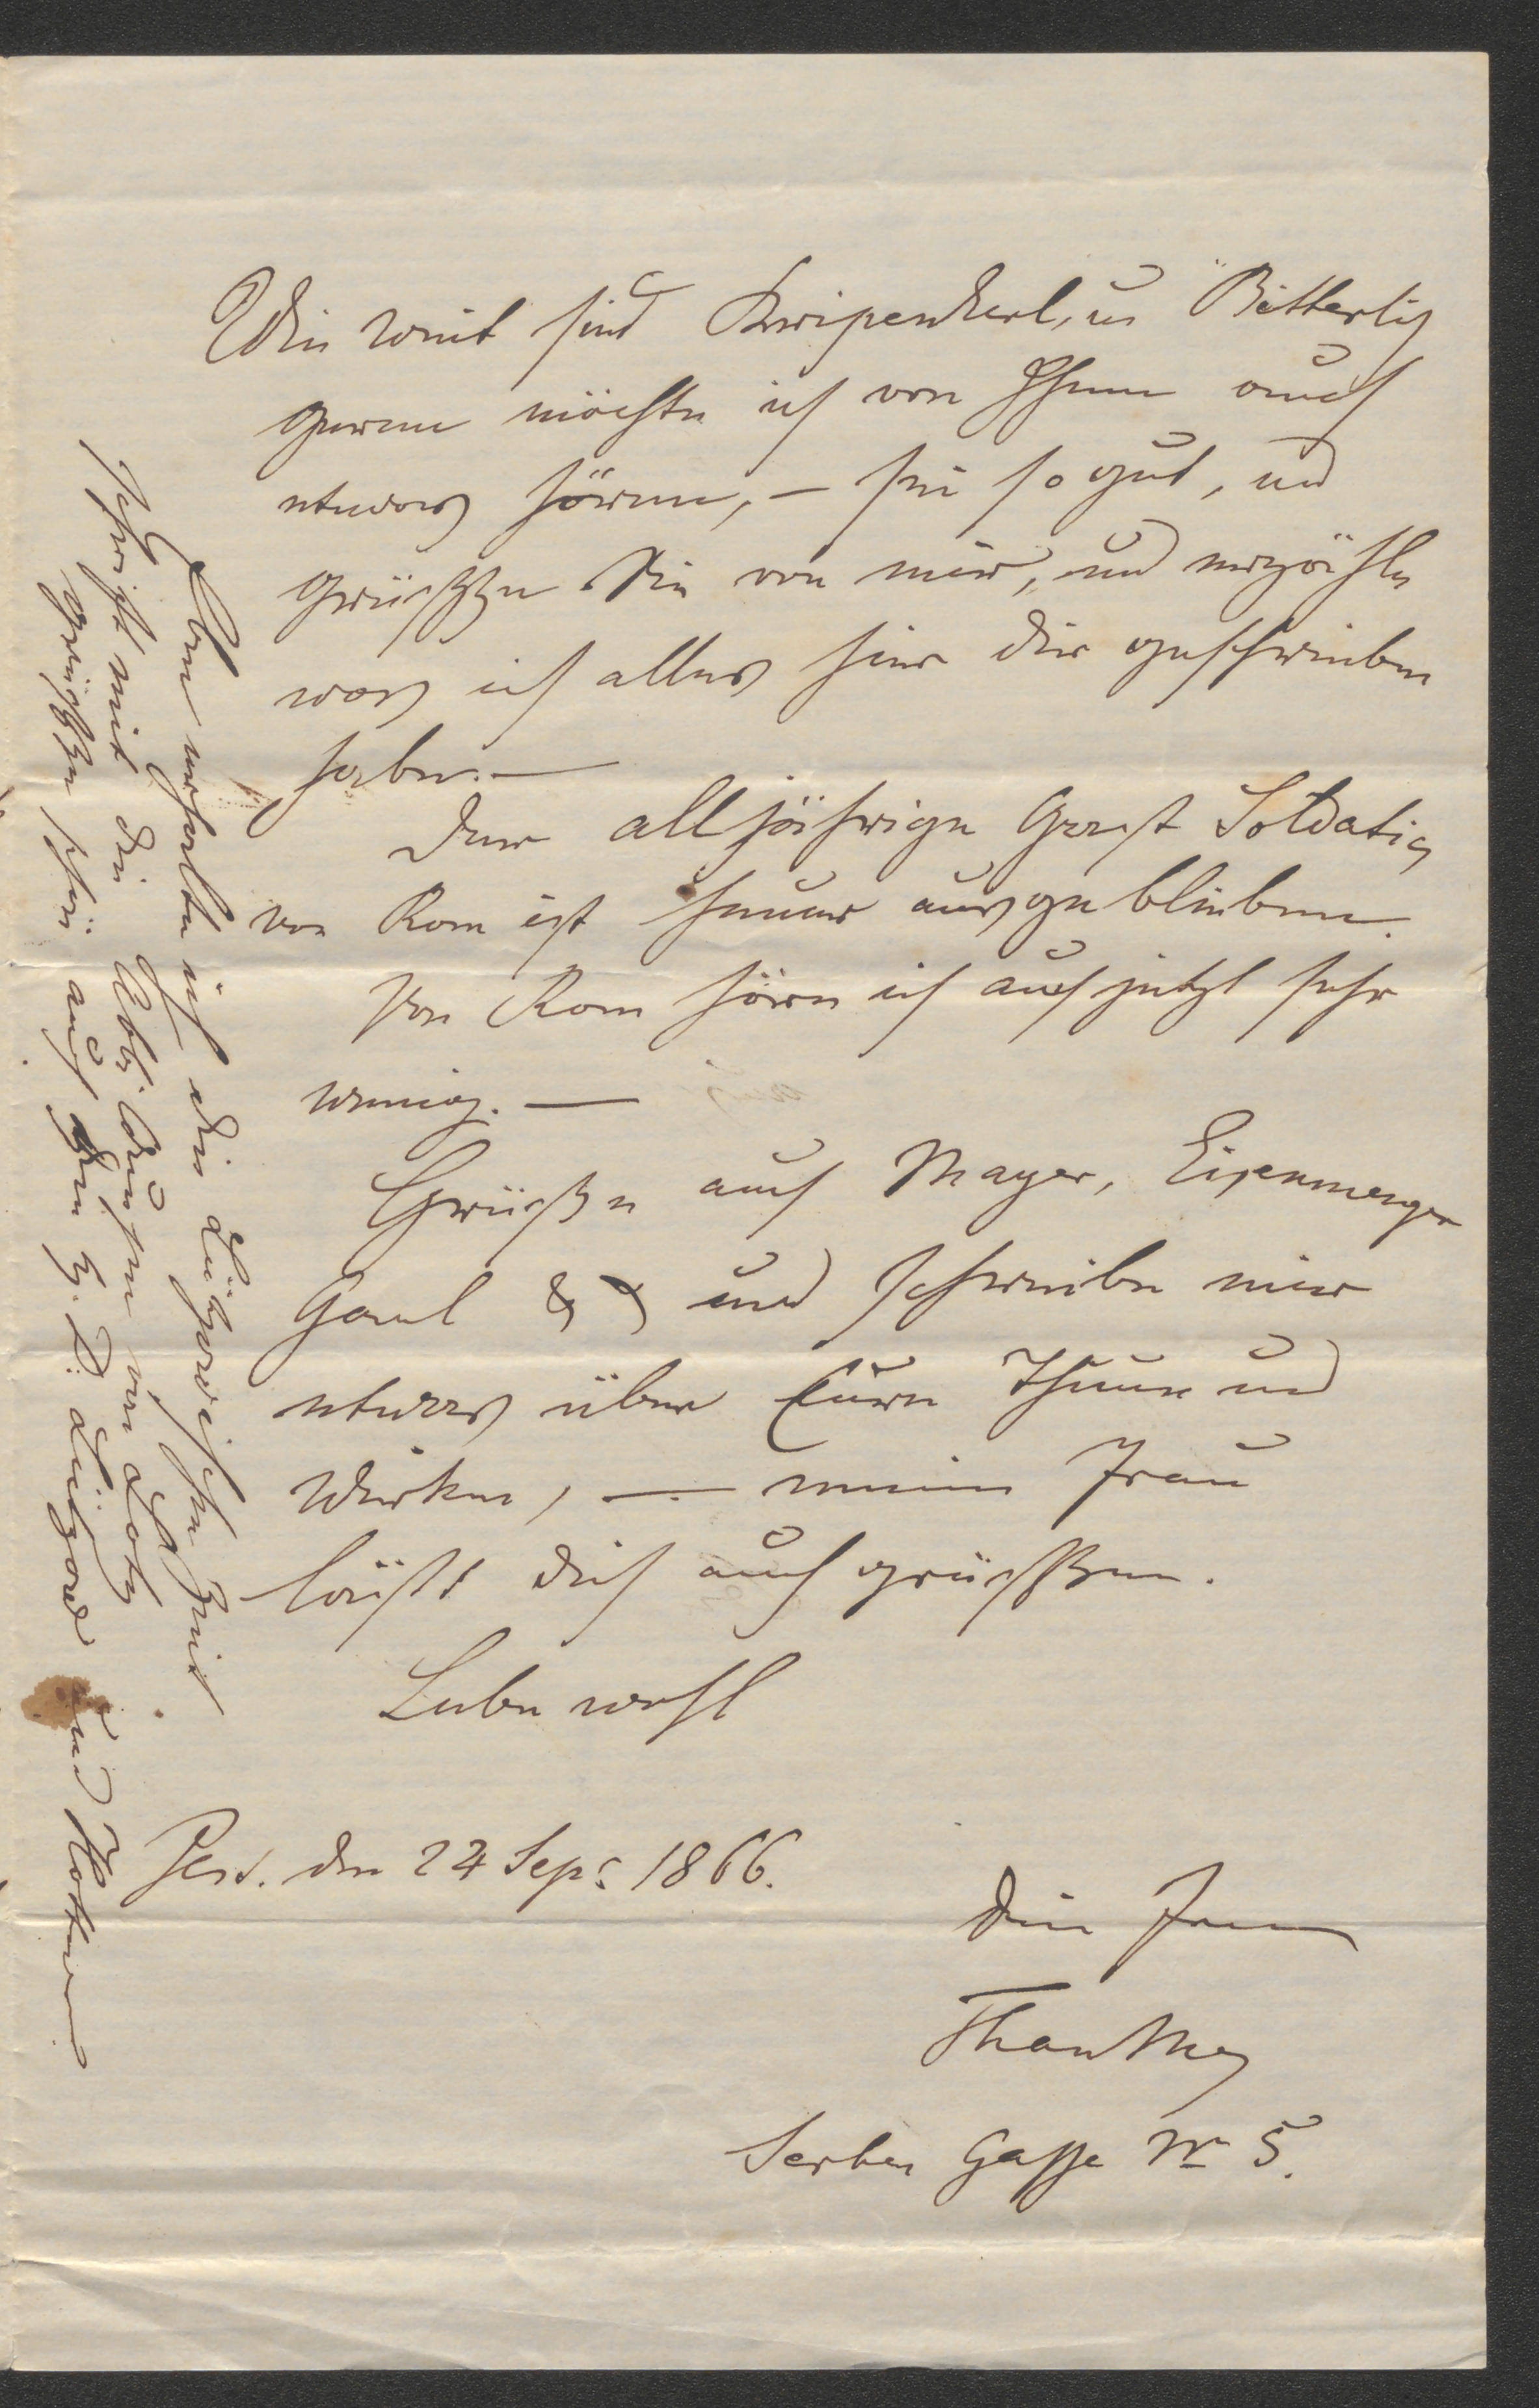 Wie weit sind Kriependerl, u Bitterlig
gerne möchte ich von Ihnen auch
etwas hören, – sei so gut, und
grüsse Sie von mir, und erzähle
was ich alles hier dir geschrieben
habe. —
Der alljährige Gast Soldatig
von Rom ist heuer ausgeblieben.
Von Rom höre ich auch jetzt sehr
wenig. —
Grüße auch Mayer, Eisenmenger
Gaul & & und schreibe mir
etwas über Eure Thuen und
Wirken, — meine Frau
läßt dich auch grüssen.
Lebe wohl
Pest. den 24 Sept 1866.
Dein Freund
Than Mor
Serben Gasse Nr 5.
Eben erhalte ich die Lützowische Zeit
schrift mit die von Lotz
grüsse schön auch den H. D. Lützow und